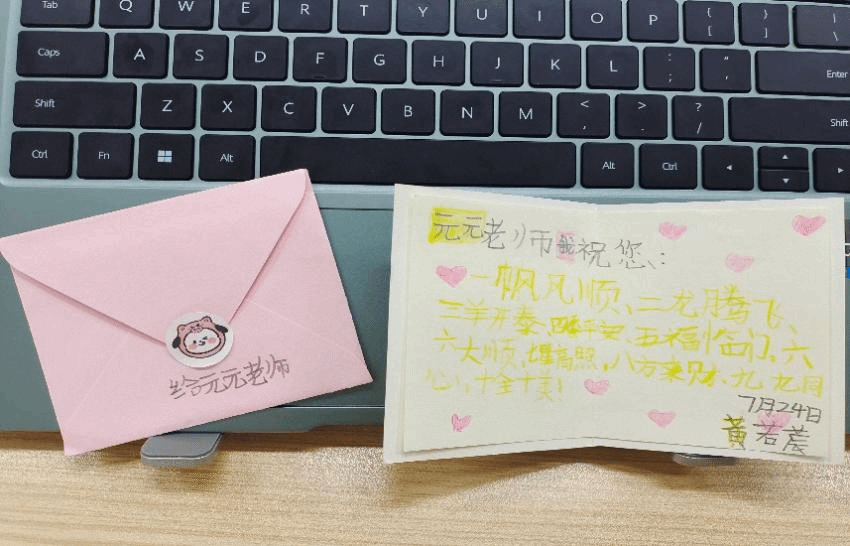 Tab Q W E R T Y U I O P { [ } ] | \
Caps A S D F G H J K L : ; " ' Enter
Shift Z X C V B N M < , > . ? / Shift
Ctrl Fn Alt Alt Ctrl
给元元老师
元元老师我祝您：
一帆风顺、二龙腾飞、
三羊开泰、四季平安、五福临门、六
六大顺、高照、八方来财、九九同
心、十全十美！
7月24日
黄若